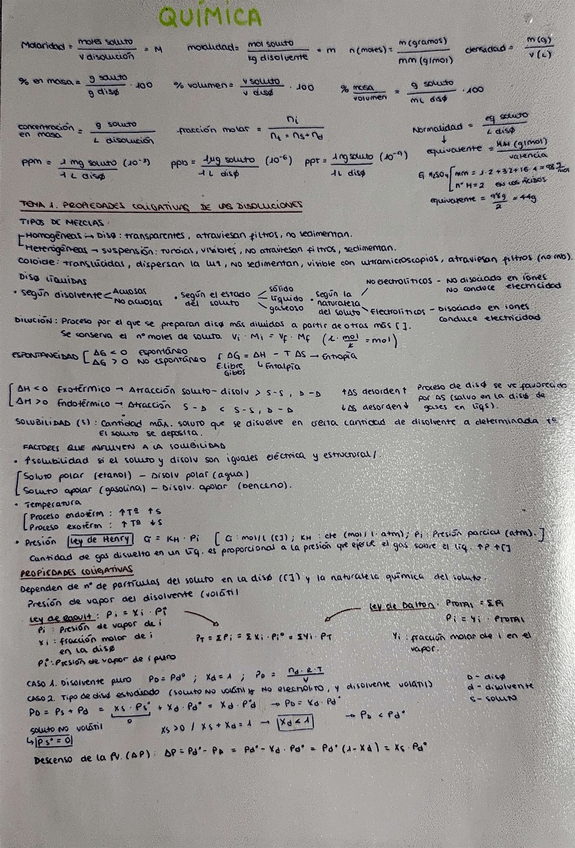 QUÍMICA
Molaridad = moles soluto / V disolución = M   molalidad = mol soluto / kg disolvente = m   n(moles) = m(gramos) / mm(g/mol)   densidad = m(g) / v(L)
% en masa = g soluto / g disº · 100   % volumen = v soluto / v disº · 100   % masa/volumen = g soluto / mL disº · 100
concentración en masa = g soluto / L disolución   fracción molar = ni / ni + ns + nd   Normalidad = eq soluto / L disº
equivalente = MM (g/mol) / valencia
ppm = 1 mg soluto (10⁻³) / 1 L disº   ppb = 1 µg soluto (10⁻⁶) / 1 L disº   ppt = 1 ng soluto (10⁻⁹) / 1 L disº
TEMA 1. PROPIEDADES COLIGATIVAS DE LAS DISOLUCIONES
TIPOS DE MEZCLAS
Homogéneas → Disº: transparentes, atraviesan filtros, no sedimentan.
Heterogéneas → suspensión: turbias, visibles, no atraviesan filtros, sedimentan.
Coloide: translúcidas, dispersan la luz, no sedimentan, visible con ultramicroscopios, atraviesan filtros (no mb).
Disº LÍQUIDAS
• según disolvente < Acuosas / No acuosas   • según el estado del soluto < sólido / líquido / gaseoso   • según la naturaleza del soluto < No electrolíticos - No disociado en iones No conduce electricidad / Electrolíticos - Disociado en iones conduce electricidad
DILUCIÓN: Proceso por el que se preparan disº más diluidas a partir de otras más [ ].
Se conserva el nº moles de soluto Vi · Mi = Vf · Mf (L · mol/L = mol)
ESPONTANEIDAD [ ΔG < 0 Espontáneo / ΔG > 0 No espontáneo   [ ΔG = ΔH - TΔS → Entropía
E. libre Gibbs   Entalpía
ΔH < 0 Exotérmico → Atracción soluto-disolv > S-S, D-D   ↑ΔS desorden↑   Proceso de disº se ve favorecido por ΔS (salvo en la disº de gases en líqs).
ΔH > 0 Endotérmico → Atracción S-D < S-S, D-D   ↓ΔS desorden↓
SOLUBILIDAD (S): Cantidad máx. soluto que se disuelve en cierta cantidad de disolvente a determinada tª.
El soluto se deposita.
FACTORES QUE INFLUYEN A LA SOLUBILIDAD
• ↑solubilidad si el soluto y disolv son iguales eléctrica y estructural/.
Soluto polar (etanol) - Disolv polar (agua)
Soluto apolar (gasolina) - Disolv. apolar (benceno).
• Temperatura
Proceso endotérm: ↑Tª ↑S
Proceso exotérm: ↑Tª ↓S
• Presión Ley de Henry Ci = KH · Pi [ Ci: mol/L ([ ]); KH: cte (mol/L · atm); Pi: Presión parcial (atm). ]
Cantidad de gas disuelto en un líq. es proporcional a la presión que ejerce el gas sobre el líq. ↑P ↑[ ]
PROPIEDADES COLIGATIVAS
Dependen de nº de partículas del soluto en la disº ([ ]) y la naturaleza química del soluto.
Presión de vapor del disolvente (volátil)
Ley de Raoult: Pi = Xi · Piº   Ley de Dalton. PTOTAL = ΣPi
Pi: Presión de vapor de i   Pi = Yi · PTOTAL
Xi: fracción molar de i en la disº   PT = ΣPi = ΣXi · Piº = ΣYi · PT   Yi: fracción molar de i en el vapor.
Piº: Presión de vapor de i puro
CASO 1. Disolvente puro PD = Pdº ; Xd = 1 ; PD = nd · R · T / V   D - disº
CASO 2. Tipo de disº estudiado (soluto no volátil y no electrolito, y disolvente volátil)   d - disolvente
PD = Ps + Pd = Xs · Psº + Xd · Pdº = Xd · Pdº → PD = Xd · Pdº   s - soluto
0
soluto no volátil   Xs > 0 / Xs + Xd = 1 → Xd < 1 → PD < Pdº
↳ Psº = 0
Descenso de la Pv. (ΔP): ΔP = Pdº - PD = Pdº - Xd · Pdº = Pdº (1 - Xd) = Xs · Pdº